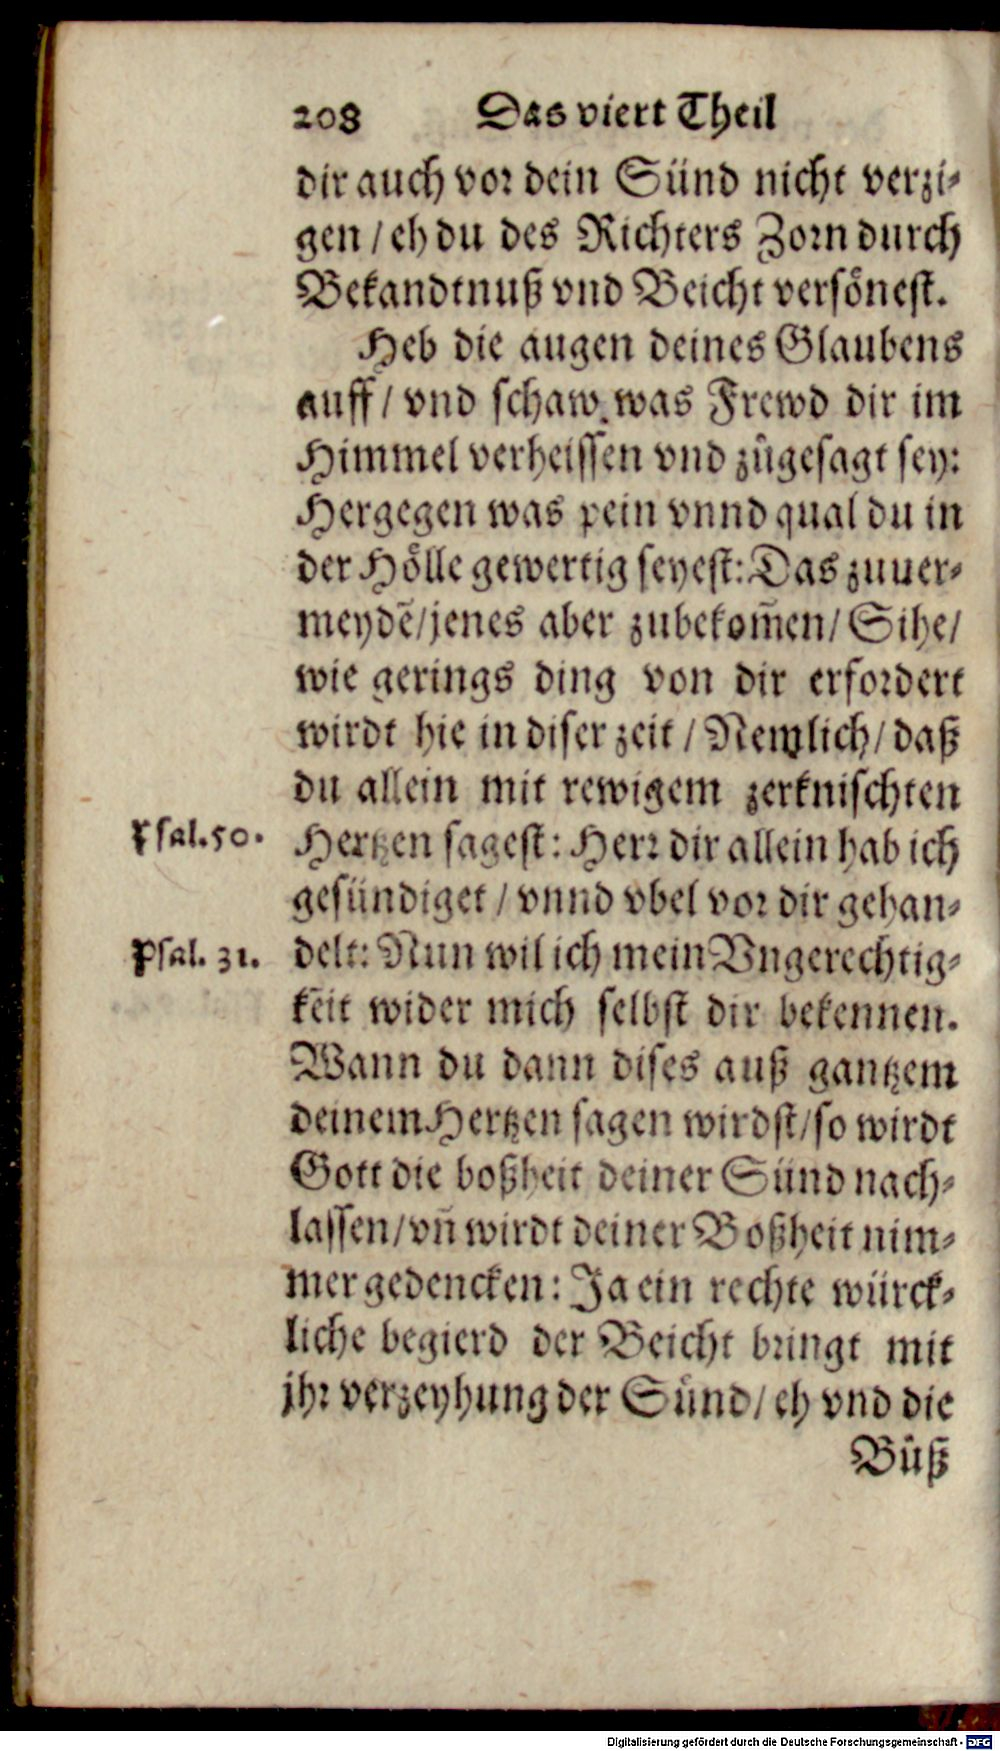 208 Das viert Theil
dir auch vor dein Sünd nicht verzi-
gen / eh du des Richters Zorn durch
Bekandtnuß vnd Beicht versönest.
Heb die augen deines Glaubens
auff / vnd schaw was Frewd dir im
Himmel verheissen vnd zůgesagt sey:
Hergegen was pein vnnd qual du in
der Hölle gewertig seyest: Das zuuer-
meydē / jenes aber zubekom̄en / Sihe /
wie gerings ding von dir erfordert
wirdt hie in diser zeit / Nemlich / daß
du allein mit rewigem zerknischten
Psal. 50. Hertzen sagest: Herr dir allein hab ich
gesündiget / vnnd vbel vor dir gehan-
Psal. 31. delt: Nun wil ich mein Vngerechtig-
keit wider mich selbst dir bekennen.
Wann du dann dises auß gantzem
deinem Hertzen sagen wirdst / so wirdt
Gott die boßheit deiner Sünd nach-
lassen / vn̄ wirdt deiner Boßheit nim-
mer gedencken: Ja ein rechte würck-
liche begierd der Beicht bringt mit
jhr verzeyhung der Sünd / eh vnd die
Bůß
Digitalisierung gefördert durch die Deutsche Forschungsgemeinschaft - DFG